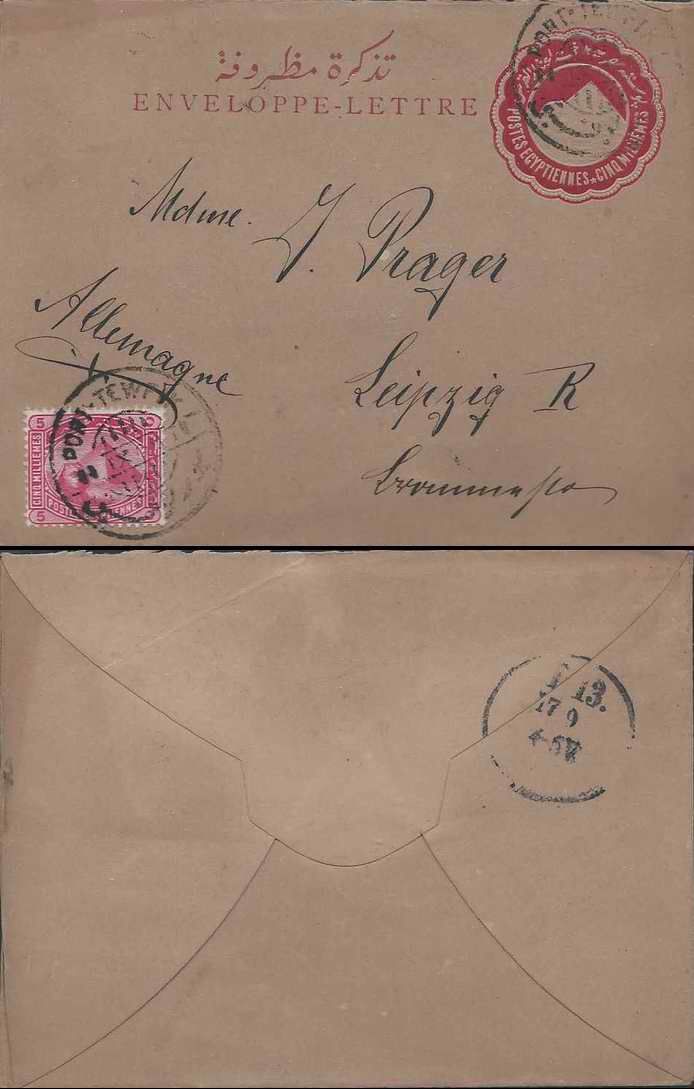 تذكرة مظروفة
ENVELOPPE-LETTRE
POSTES EGYPTIENNES * CINQ MILLIEMES
PORT-TEWFIK
Mdme. J. Prager
Allemagne
Leipzig R
PORT-TEWFIK
5
CINQ MILLIEMES
5 POSTES EGYPTIENNES
13.
17 9
4-5